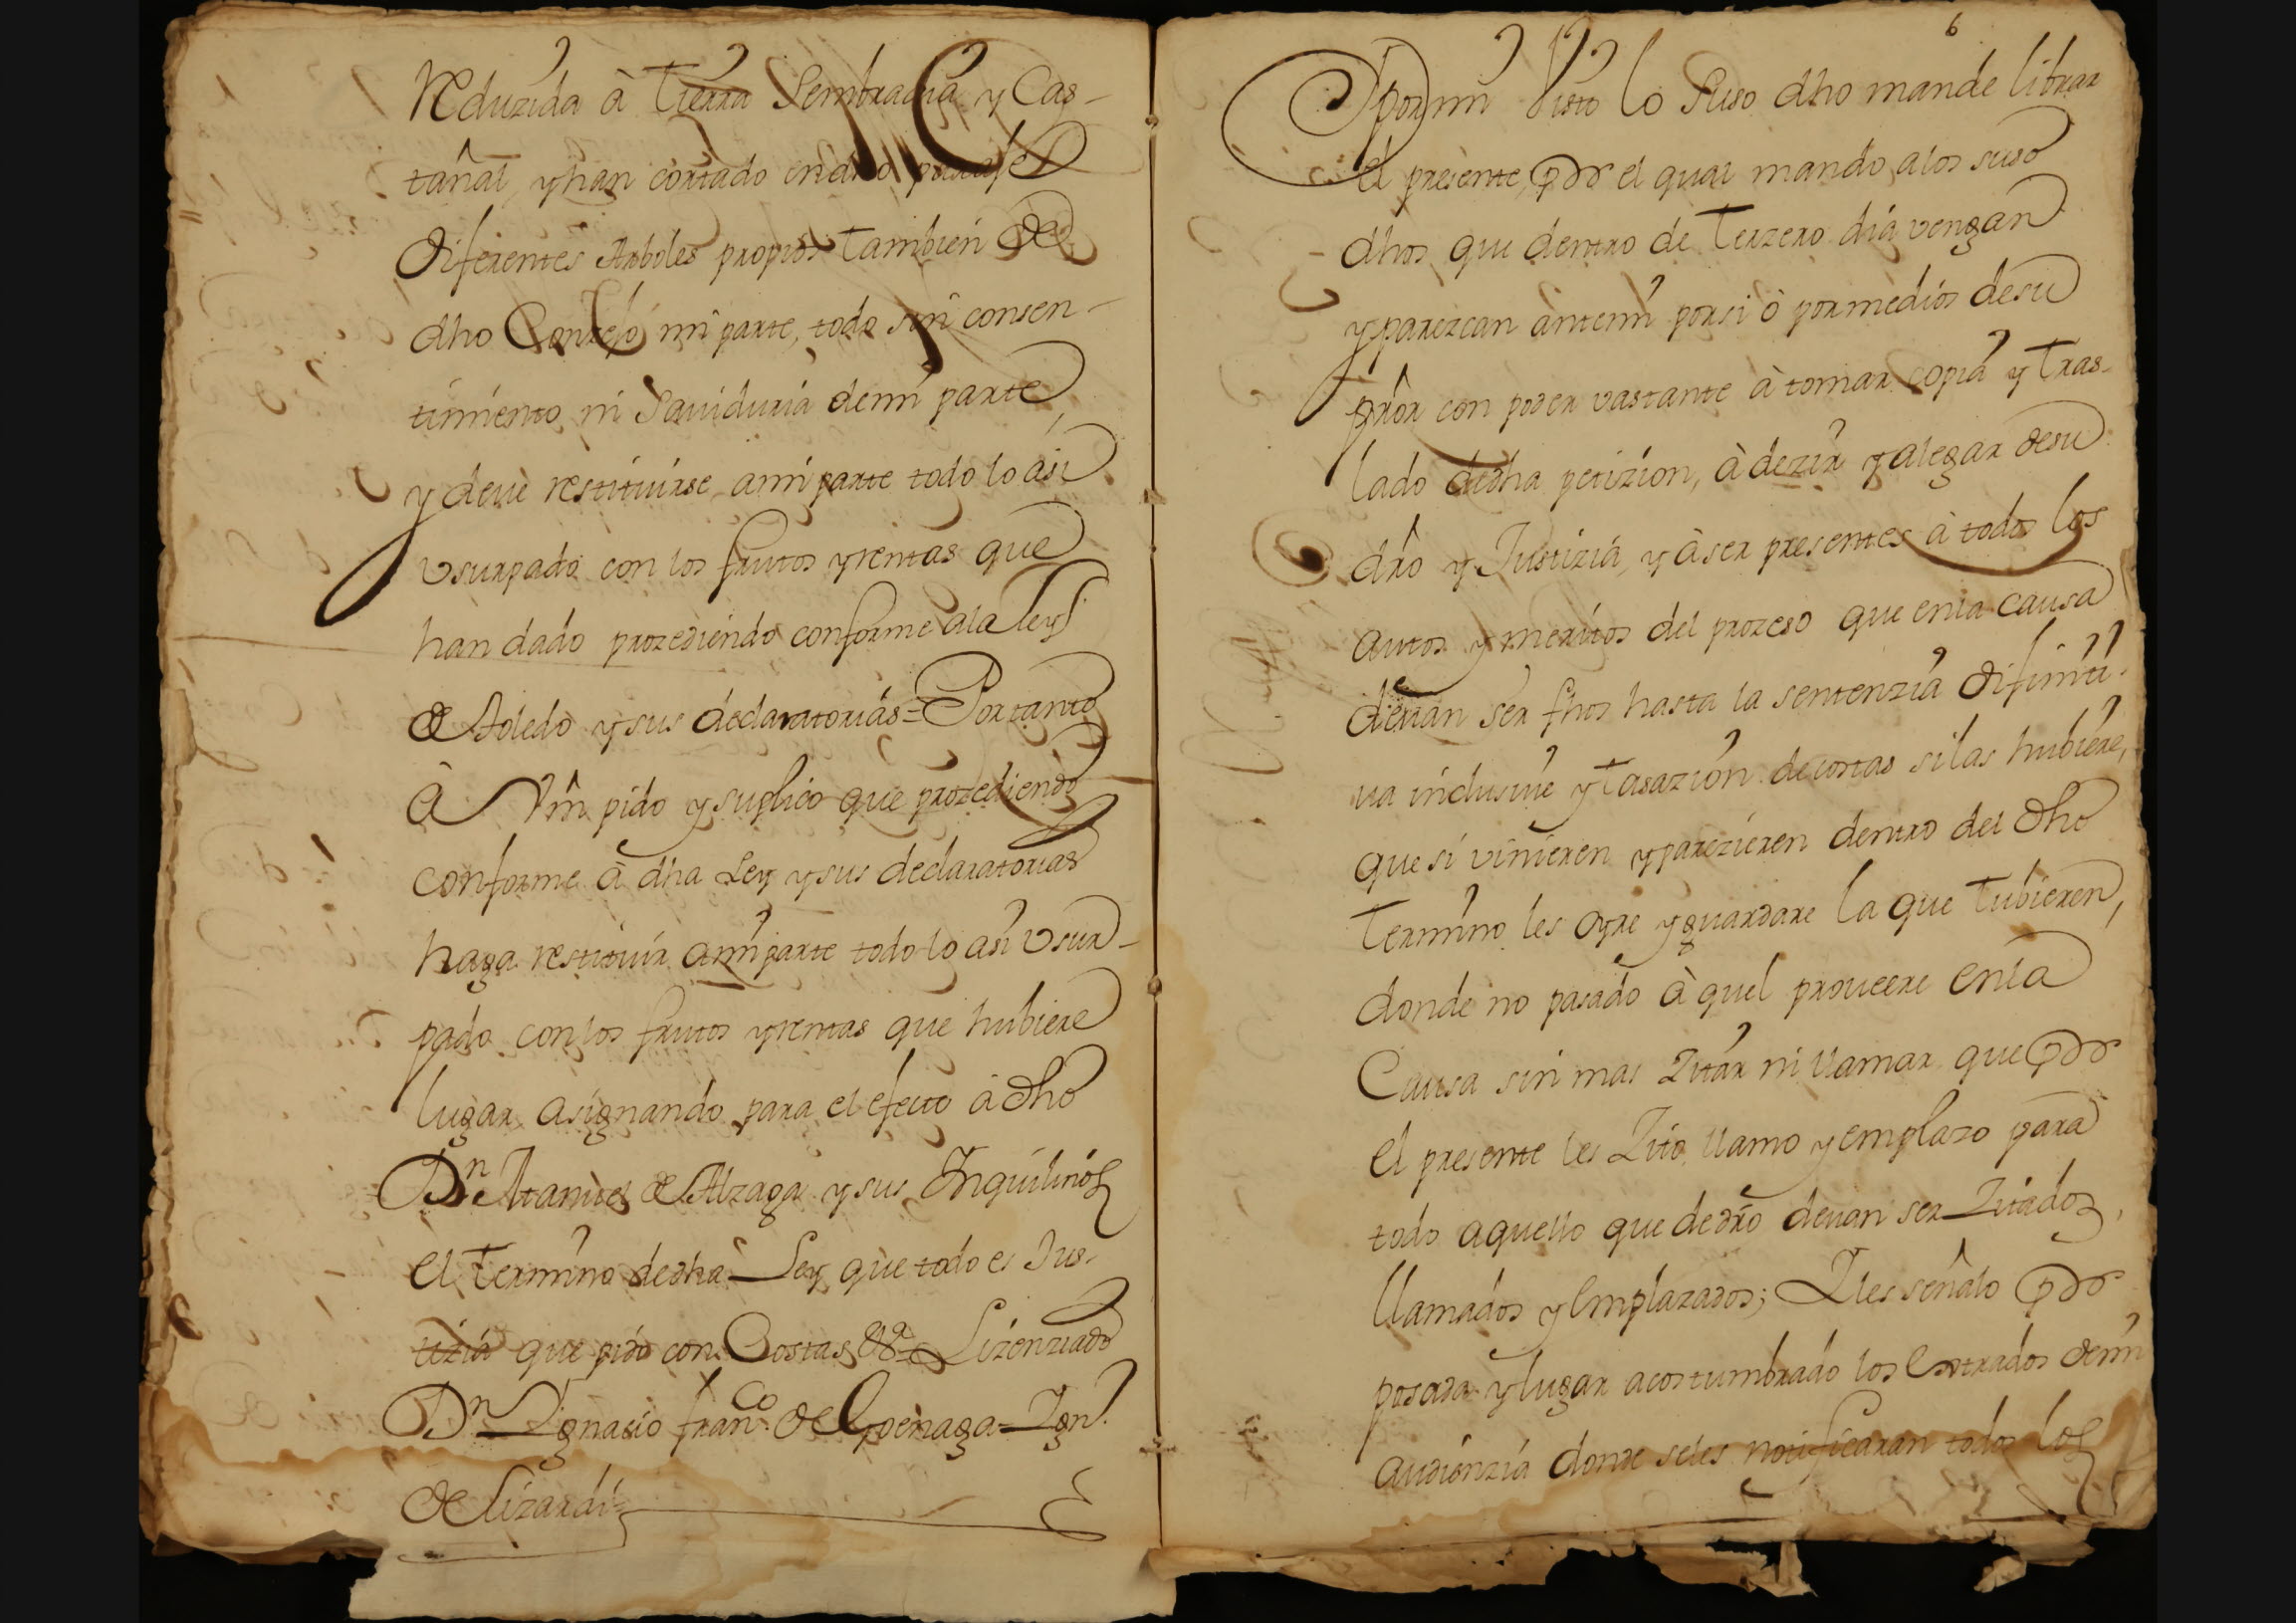 Reduzida à Tierra Sembradia y Cas-
tañal, y han cortado en dho paraje
diferentes Arboles propios tambien de
dho Conzejo mi parte, todo sin consen-
timiento ni Saviduria de mi parte,
y deve restituirse a mi parte todo lo asi
vsurpado con los frutos y rentas que
han dado prozediendo conforme a la ley
de toledo y sus declaratorias = Por tanto
à Vm pido y suplico que prozediendo
conforme à dha Ley y sus declaratorias
haga restituir a mi parte todo lo asi vsur-
pado con los frutos y rentas que hubiere
lugar asignando para el efecto à dho
Dn Manuel de Alzaga y sus Inquilinos
el termino de dha Ley que todo es Jus-
tizia que pido con Costas &a = Lizenziado
Dn Ignacio franco de Goenaga = Ign.
de Lizardi =
6
Y por mi Visto lo Suso dho mande librar
el presente, por el qual mando a los suso
dhos que dentro de Terzero dia vengan
y parezcan ante mi por si ò por medios de su
prôr con poder vastante à tomar copia y tras-
lado de dha petizion, à dezir y alegar de su
drô y Justizia, y à ser presentes à todos los
autos y meritos del prozeso que en la causa
devan ser fhos hasta la sentenzia difiniti-
va inclusive y tasazion de costas si las hubiere,
que si vinieren y parezieren dentro del dho
termino les oyre y guardare la que tubieren,
donde no pasado à quel proveere en la
Causa sin mas Zitar ni llamar que por
el presente les Zito, llamo y emplazo para
todo aquello que de drô devan ser Zitados,
llamados y emplazados; I les señalo por
posada y lugar acostumbrado los Estrados de mi
audienzia donde se les notificaran todos los